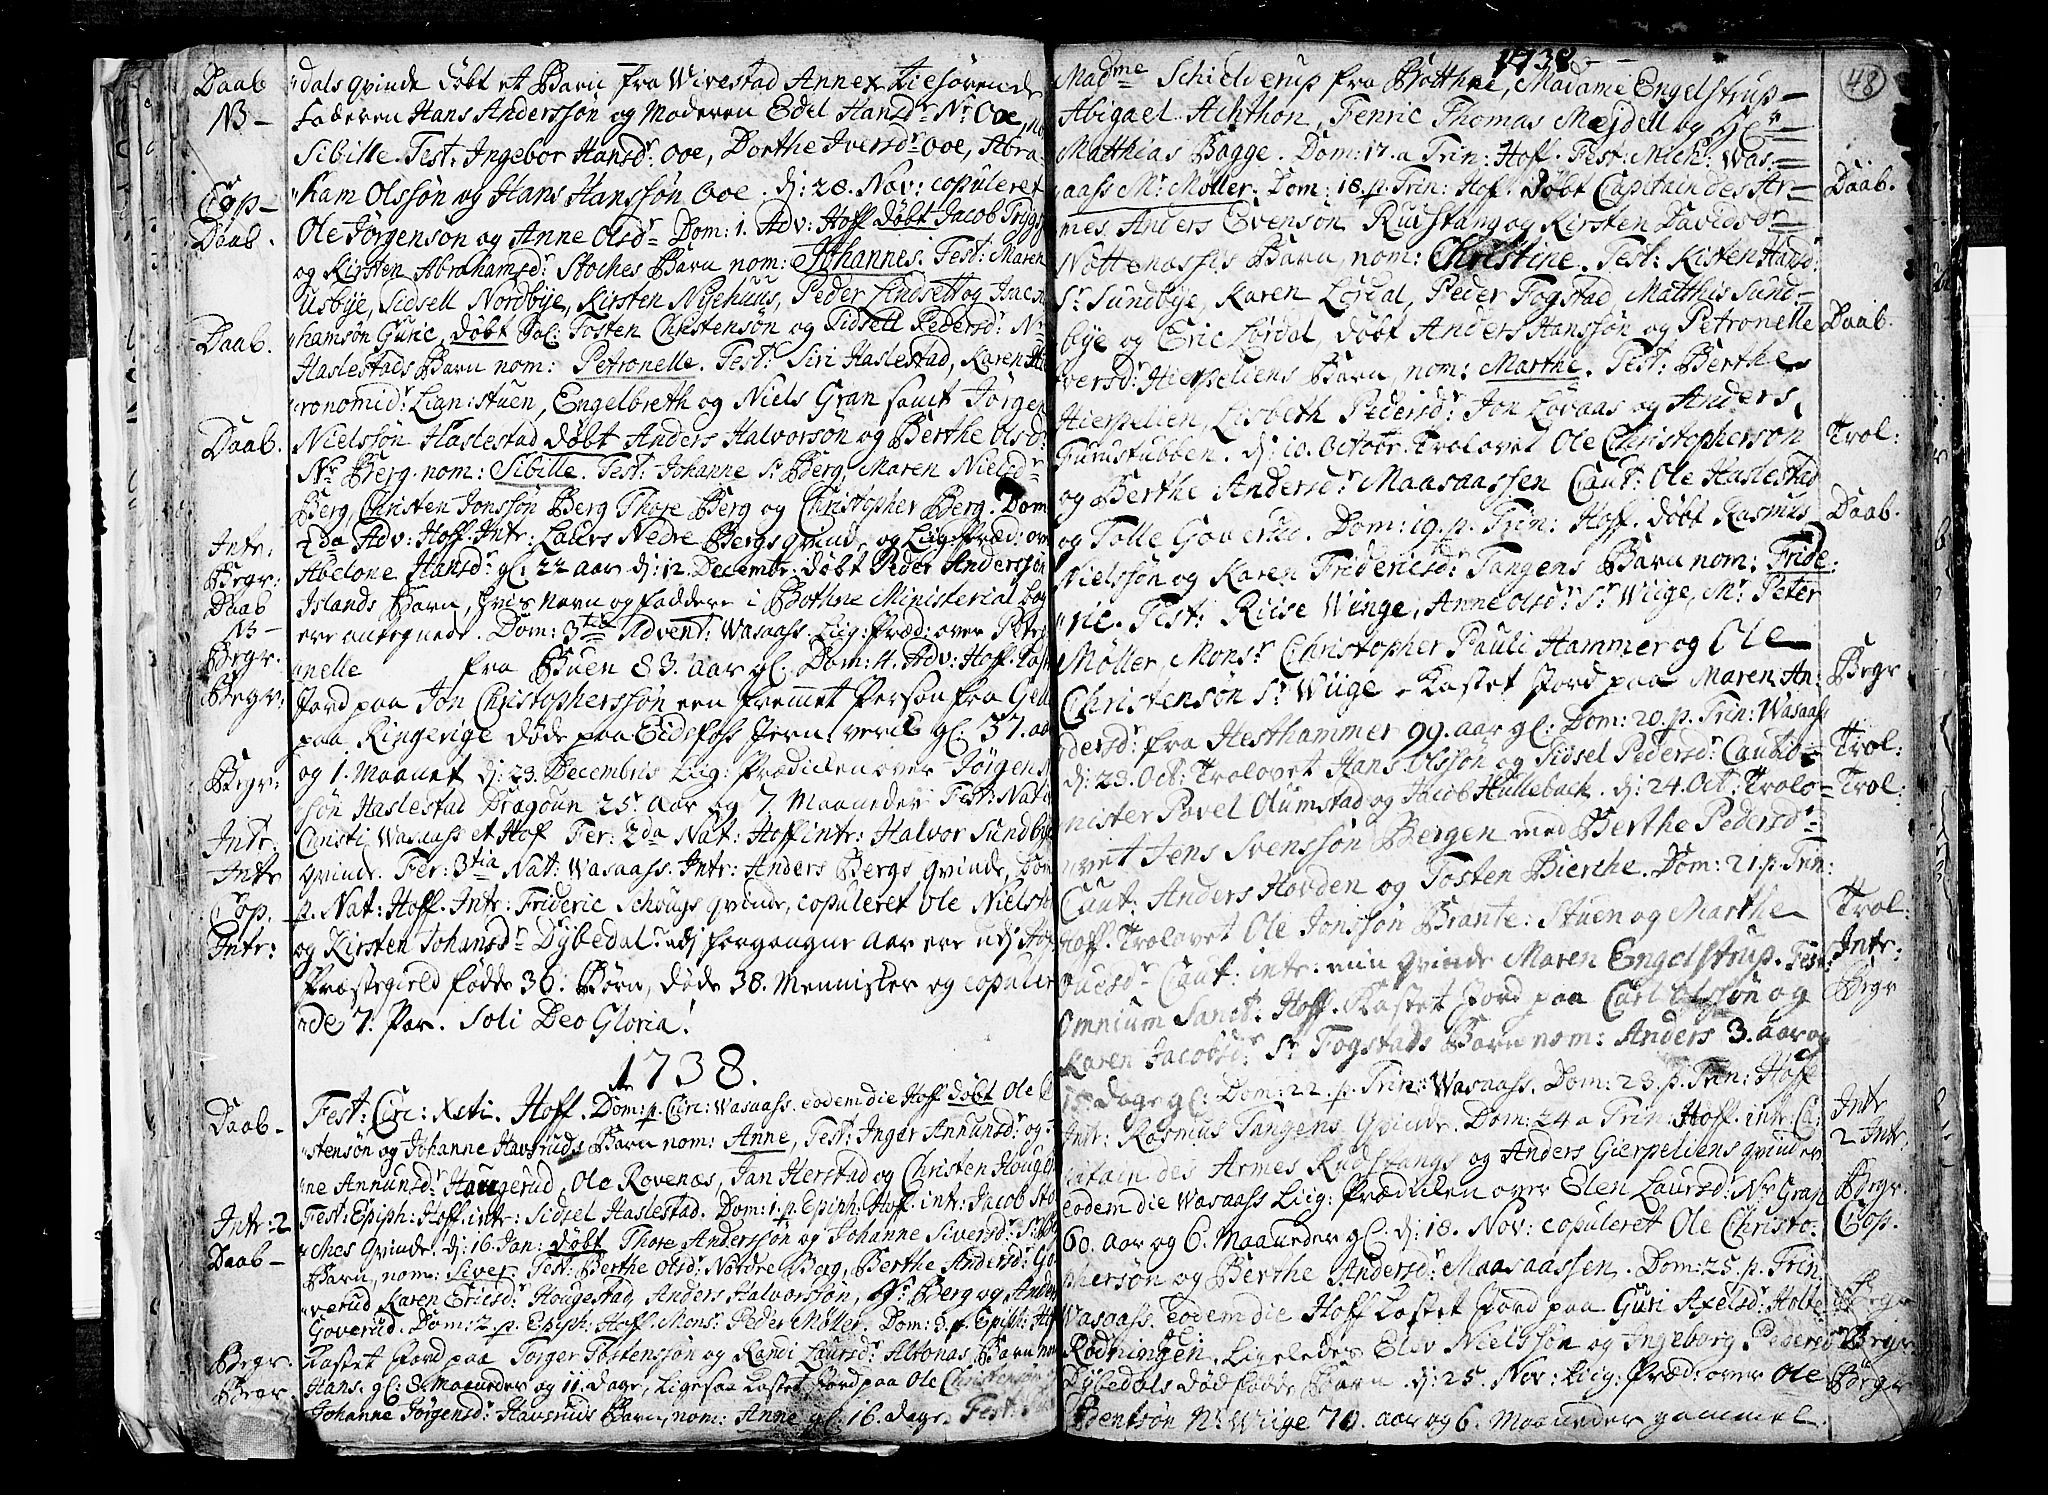 Daab dals qvinde døbt et Barn fra Wivestad Annex tilhørende
NB - Faderen Hans Anderssøn og Moderen Edel Hansdr. Nr. Ooe,
Sibille. Test: Ingebor Hansdr. Ooe, Dorthe Iversdr Ooe, Abra-
Cop - ham Olssøn og Hans Hanssøn Ooe. dj: 28. Nov: copuleret
Daab. Ole Jørgenson og Anne Olsdr Dom: 1. Adv: Hoff døbt Jacob
og Kirsten Abrahamsdr. Stoches Barn nom: Johannes. Test: Maren
Usbye, Sidsell Nordbye, Kirsten Nyehuus, Peder Lindsett og
Daab. hamsøn Guric, døbt Sal: Tosten Christensøn og Sidsell Pedersdr. Nr
Haslestads Barn nom: Petronelle. Test: Siri Haslestad, Karen
ronomidr: Lian: stuen, Engelbreth og Niels Gran samt Jørgen
Daab. Nielssøn Haslestad døbt Anders Halvorsøn og Berthe Olsdr:
Nr Berg. nom: Sibille. Test: Johanne Sr. Berg, Maren Nielsdr
Berg, Christen Jonssøn Berg Thore Berg og Christopher Berg. Dom
Intr: 2da Adv: Hoff. Intr: Laurs Nedre Bergs qvinde, og Liig: Præd: over
Begr: Abelone Hansdr. gl: 22 aar dj: 12. Decembr. døbt Peder Anderssøn
Daab Islands Barn, hvis navn og faddere i Bothne Ministerial bog
NB - ere antegnede. Dom: 3tia Advent: Wasaass. Liig: Præd: over Petro
Begr. nelle fra Buen 83. aar gl. Dom: 4. Adv: Hoff. Castet
Begr: Jord paa Jon Christopherssøn een fremmet Person fra
paa Ringerige døde paa Eidsfoss Jern: verck gl: 37. aar
og 1. Maanet dj: 23. Decembris Liig: Prædicken over Jørgens
Begr: søn Haslestad Dragoun 25. aar og 7. Maaneder Fest: Nativ
Intr: Christi Wasaass et Hof Fer: 2da Nat: Hoff intr: Halvor Sundbye
Intr qvinde. Fer: 3tia Nat: Wasaass. Intr: Anders Bergs qvinde, Dom
Cop. p. Nat: Hoff. Intr: Frideric Schougs qvinde, copuleret Ole Nielss
Intr: og Kirsten Johansdr. Dybedal. udj forgangne Aar ere udj Hofs
Præstegield fødde 36. Børn, døde 38. Mennisker og copuler
ede 7. Par. Soli Deo Gloria!
1738.
Fest: Circ: Xsti. Hoff. Dom: p. Circ: Wasaass. eodem die Hoff døbt Ole
Daab - stensøn og Johanne Havsruds Barn nom: Anne, Test: Inger Annunsdr: og
ne Annunsdr. Haugerud, Ole Rovenæs, Jan Herstad og Christen Hougen
Intr: 2 Fest: Epiph: Hoff. intr: Sidsel Haslestad. Dom: 1. p. Epiph: Hoff. intr: Jacob Sto
ches qvinde. dj: 16. Jan: døbt Thore Anderssøn og Johanne Siversdr:
Daab - Barn, nom: Siver. Test: Berthe Olsdr. Nordre Berg, Berthe Andersdr:
verud Karen Ericsdr. Hougestad, Anders Halvorssøn, Nr. Berg og Anders
Goverud. Dom: 2. p. Epiph: Hoff. Mons: Peder Møller. Dom: 3. p. Epiph: Hoff
Begr. Castet Jord paa Torger Tostenssøn og Randi Laursdr. Altonas Barn nom
Begr. Hans, gl: 8. Maaneder og 11. dage, Ligesaa Castet Jord paa Ole Christensøn
Johanne Jørgensdr: Havsruds Barn, nom: Anne, gl: 16. dage. Fest:
1738
48
Madme Schielderup fra Bothne, Madame Engelstrup
Abigael Achthon, Fenric Thomas Mejdell og Hr
Matthias Bagge. Dom: 17. a Trin: Hoff. Fest: Mich: Was-
aass Mr. Møller. Dom: 18. p. Trin: Hof. døbt Capitain des Ar- Daab.
mes, Anders Evensøn Rudstang og Kirsten Davidsdr
Nøttenæssis Barn, nom: Christine. Test: Kisten Hansdr:
Sr. Sundbye, Karen Lørdal, Peder Fogstad, Matthis Sund-
bye og Eric Lørdal, døbt Anders Hanssøn og Petronelle Daab.
Iversdr: Hierpeliens Barn, nom: Marthe. Test: Berthe
Hierpelien, Lisbeth Pedersdr. Jon Løvaas og Anders
Furustubben. dj: 10. Octobr. Trolovet Ole Christopherson Trol:
og Berthe Andersdr. Maasaassen Caut: Ole Haslestad
og Tolle Goverud. Dom: 19. p. Trin: Hoff. døbt Rasmus Daab.
Nielssøn og Karen Fridericsdr. Tangens Barn nom: Fride-
ric. Test: Riise Winge, Anne Olsdr. Sr. Wiige, Mr. Peter
Møller, Monsr. Christopher Pauli Hammer og Ole
Christensøn Sr. Wiige. Kastet Jord paa Maren An- Begr
dersdr. fra Hesthammer 99. aar gl: Dom: 20. p. Trin: Wasaass
dj: 23. Oct: Trolovet Hans Olssøn og Sidsel Pedersdr. Cautio- Trol:
nister Povel Olumstad og Jacob Hulleback. dj: 24. Oct: Trolo- Trol:
vet Jens Svenssøn Bergen med Berthe Pedersdr
Caut: Anders Hovden og Tosten Bierche. Dom: 21. p. Trin:
Hoff. Trolovet Ole Jonssøn Brante: Stuen og Marthe Trol:
Caut: intr: min qvinde Maren Engelstrup. Fest: Intr:
Omnium Sanct: Hoff. Kastet Jord paa Carl Olssøn og Begr
Karen Jacobsdr. Sr. Fogstads Barn nom: Anders 3. aar og
dage gl: Dom: 22. p. Trin: Wasaass. Dom: 23. p. Trin: Hoff
Intr: Rasmus Tangens qvinde. Dom: 24 a Trin: Hoff. intr: Ca- Intr
pitain des Armes Rudstangs og Anders Gierpeliens qvinder 2 Intr.
eodem die Wasaass Liig: Prædicken over Elen Laursdr. Nr Gran Begr.
60. aar og 6. Maaneder gl: dj: 18. Nov: copuleret Ole Christo- Cop.
phersøn og Berthe Andersdr: Maasaassen. Dom: 25. p. Trin
Wasaass. eodem die Hoff Castet Jord paa Guri Axelsdr. Holte Begr
Rødningen, Ligeledes Elev Nielssøn og Ingeborg Pedersdr Begr
Dybedals død fødde Barn. dj: 25. Nov: Liig: Præd: over Ole Begr
Bentsøn Nr. Wiige 70. aar og 6. Maaneder gammel.